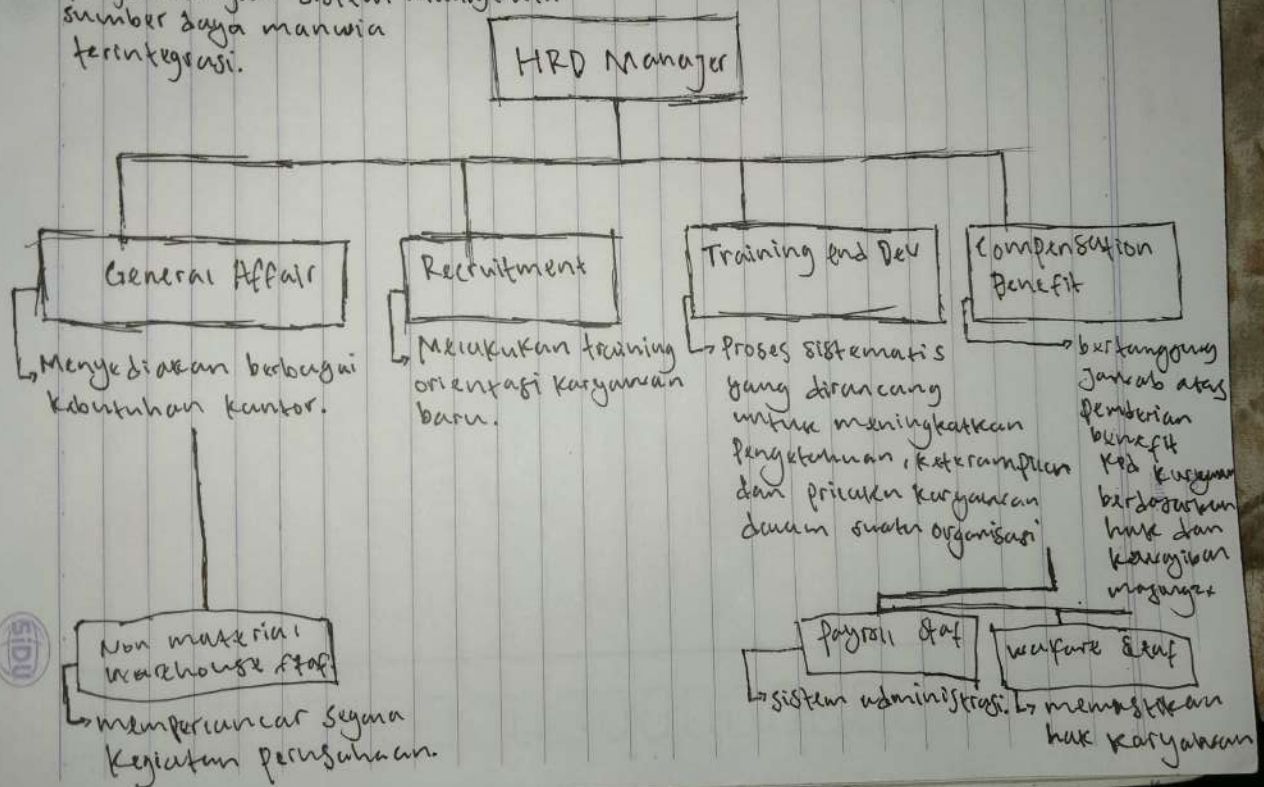 sumber daya manusia
terintegrasi.
HRD Manager
General Affair
Menyediakan berbagai
kebutuhan kantor.
Recruitment
Melakukan training
orientasi karyawan
baru.
Training end Dev
Proses sistematis
yang dirancang
untuk meningkatkan
pengetahuan, keterampilan
dan prilaku karyawan
dalam suatu organisasi
Compensation
Benefit
bertanggung
jawab atas
pemberian
benefit
kpd karyawan
berdasarkan
hak dan
kewajiban
masing2x
Non material
warehouse staf
memperlancar segala
kegiatan perusahaan.
payroll staf
sistem administrasi.
walfare staf
memastikan
hak karyawan
SIDU